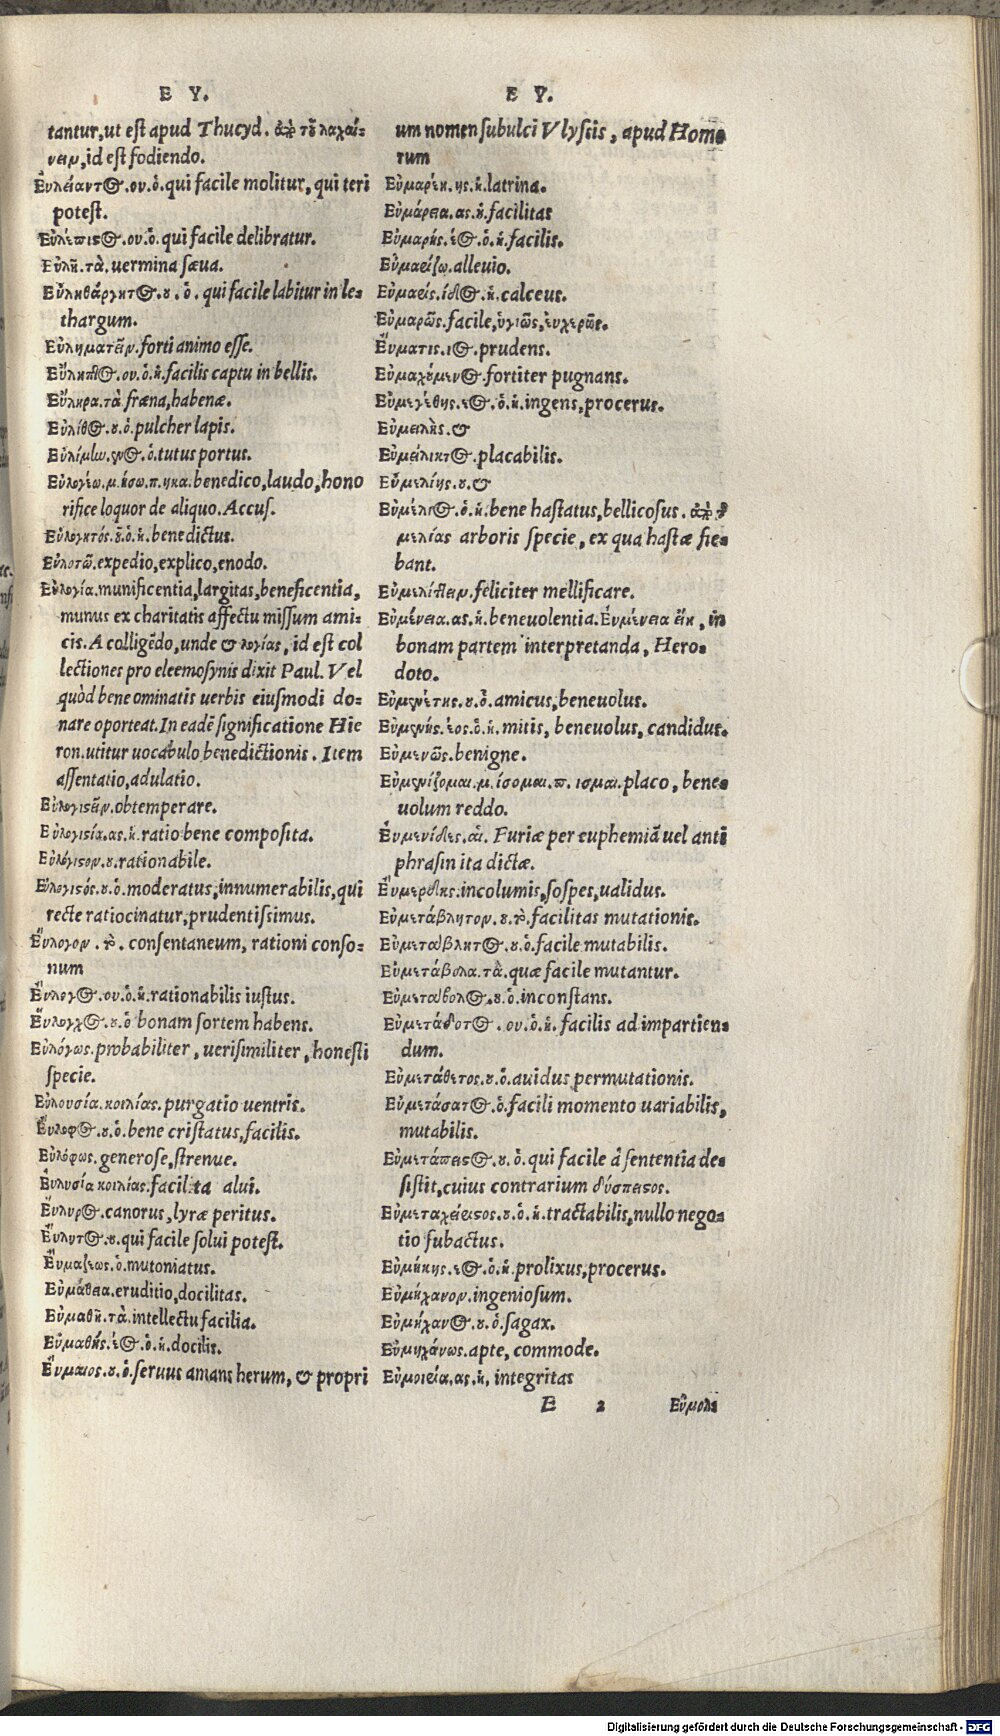 E Υ.
tantur, ut est apud Thucyd. ἀπὸ τοῦ λαχαί-
νειν, id est fodiendo.
Εὐλείαντος. ου. ὁ. qui facile molitur, qui teri
potest.
Εὐλέπιστος. ου. ὁ. qui facile delibratur.
Εὐλῆ. τὰ. uermina sæua.
Εὐληθάργητος. ου. ὁ. qui facile labitur in le-
thargum.
Εὐληματεῖν. forti animo esse.
Εὔληπτος. ου. ὁ. ἡ. facilis captu in bellis.
Εὔληρα. τὰ. fræna, habenæ.
Εὐλίθος. ου. ὁ. pulcher lapis.
Εὐλίμην. ενος. ὁ. tutus portus.
Εὐλογέω. μ. ήσω. π. ηκα. benedico, laudo, hono
rifice loquor de aliquo. Accus.
Εὐλογητός. οῦ. ὁ. ἡ. benedictus.
Εὐλοτῶ. expedio, explico, enodo.
Εὐλογία. munificentia, largitas, beneficentia,
munus ex charitatis affectu missum ami-
cis. A colligēdo, unde & λογίας, id est col
lectiones pro eleemosynis dixit Paul. Vel
quòd bene ominatis uerbis eiusmodi do-
nare oporteat. In eadē significatione Hie
ron. utitur uocabulo benedictionis. Item
assentatio, adulatio.
Εὐλογιστεῖν. obtemperare.
Εὐλογιστία. ας. ἡ. ratio bene composita.
Εὐλόγιστον. ου. rationabile.
Εὐλογιστός. ου. ὁ. moderatus, innumerabilis, qui
recte ratiocinatur, prudentissimus.
Εὔλογον. τὸ. consentaneum, rationi conso-
num
Εὔλογος. ου. ὁ. ἡ. rationabilis iustus.
Εὔλογχος. ου. ὁ bonam sortem habens.
Εὐλόγως. probabiliter, uerisimiliter, honesti
specie.
Εὐλουσία. κοιλίας. purgatio uentris.
Εὔλοφος. ου. ὁ. bene cristatus, facilis.
Εὐλόφως. generose, strenue.
Εὐλυσία κοιλίας. facilita alui.
Εὔλυρος. canorus, lyræ peritus.
Εὔλυτος. ου. qui facile solui potest.
Εὔμαζεως. ὁ. mutoniatus.
Εὐμάθεια. eruditio, docilitas.
Εὐμαθῆ. τὰ. intellectu facilia.
Εὐμαθής. έος. ὁ. ἡ. docilis.
Εὔμαιος. ου. ὁ. seruus amans herum, & propri
E Υ.
um nomen subulci Vlyssis, apud Home
rum
Εὐμαρέη. ης. ἡ. latrina.
Εὐμάρεια. ας. ἡ. facilitas
Εὐμαρής. έος. ὁ. ἡ. facilis.
Εὐμαρίζω. alleuio.
Εὐμαρίς. ίδος. ἡ. calceus.
Εὐμαρῶς. facile, ὑγιῶς, εὐχερῶς.
Εὔματις. ιος. prudens.
Εὐμαχούμενος. fortiter pugnans.
Εὐμεγέθης. εος. ὁ. ἡ. ingens, procerus.
Εὐμειλὴς. &
Εὐμείλικτος. placabilis.
Εὐμελίης. ου. &
Εὐμέλιος. ὁ. ἡ. bene hastatus, bellicosus. ἀπὸ τῆς
μελίας arboris specie, ex qua hastæ fie-
bant.
Εὐμελίττειν. feliciter mellificare.
Εὐμένεια. ας. ἡ. beneuolentia. Εὐμένεια εἴη, in
bonam partem interpretanda, Hero-
doto.
Εὐμενέτης. ου. ὁ. amicus, beneuolus.
Εὐμενής. έος. ὁ. ἡ. mitis, beneuolus, candidus.
Εὐμενῶς. benigne.
Εὐμενίζομαι. μ. ίσομαι. π. ισμαι. placo, bene-
uolum reddo.
Εὐμενίδες. αἱ. Furiæ per euphemiā uel anti
phrasin ita dictæ.
Εὐμερδής. incolumis, sospes, ualidus.
Εὐμετάβλητον. ου. τὸ. facilitas mutationis.
Εὐμετάβλητος. ου. ὁ. facile mutabilis.
Εὐμετάβολα. τὰ. quæ facile mutantur.
Εὐμετάβολος. ου. ὁ. inconstans.
Εὐμετάδοτος. ου. ὁ. ἡ. facilis ad impartien-
dum.
Εὐμετάθετος. ου. ὁ. auidus permutationis.
Εὐμετάστατος. ὁ. facili momento uariabilis,
mutabilis.
Εὐμετάπειστος. ου. ὁ. qui facile à sententia de-
sistit, cuius contrarium δύσπειστος.
Εὐμεταχείριστος. ου. ὁ. ἡ. tractabilis, nullo nego-
tio subactus.
Εὐμήκης. εος. ὁ. ἡ. prolixus, procerus.
Εὐμήχανον. ingeniosum.
Εὐμήχανος. ου. ὁ. sagax.
Εὐμηχάνως. apte, commode.
Εὐμοιρία. ας. ἡ. integritas
E 2 Εὔμολ-
Digitalisierung gefördert durch die Deutsche Forschungsgemeinschaft - DFG